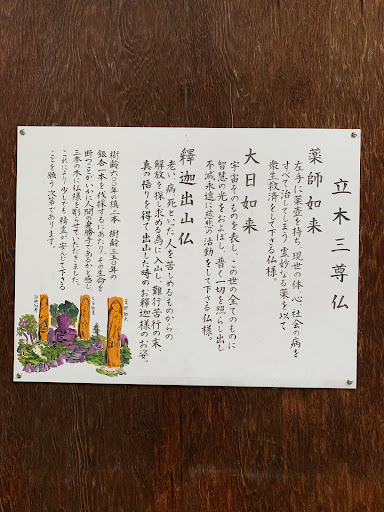 立木三尊仏
薬師如来
左手に薬壺を持ち、現世の体、心、社会の病を
すべて治してしまう霊妙なる薬を以て
衆生救済をして下さる仏様。
大日如来
宇宙そのものを表し、この世の全てのものに
智慧の光をおよぼし、普く一切を照らし出し
不滅永遠に慈悲の活動をして下さる仏様。
釋迦出山仏
老い、病、死といった人を苦しめるものからの
解放を探し求める為に入山し、難行苦行の末、
真の悟りを得て出山した時のお釋迦様のお姿。
樹齢六〇〇年の槙二本、樹齢三五〇年の
銀杏一本を伐採するにあたり、その生命を
断つことがいかに人間の身勝手であるかと感じ
三本の木に仏様を彫らせていただきました。
これにより少しでも精霊が安んじて下さる
ことを願う次第であります。